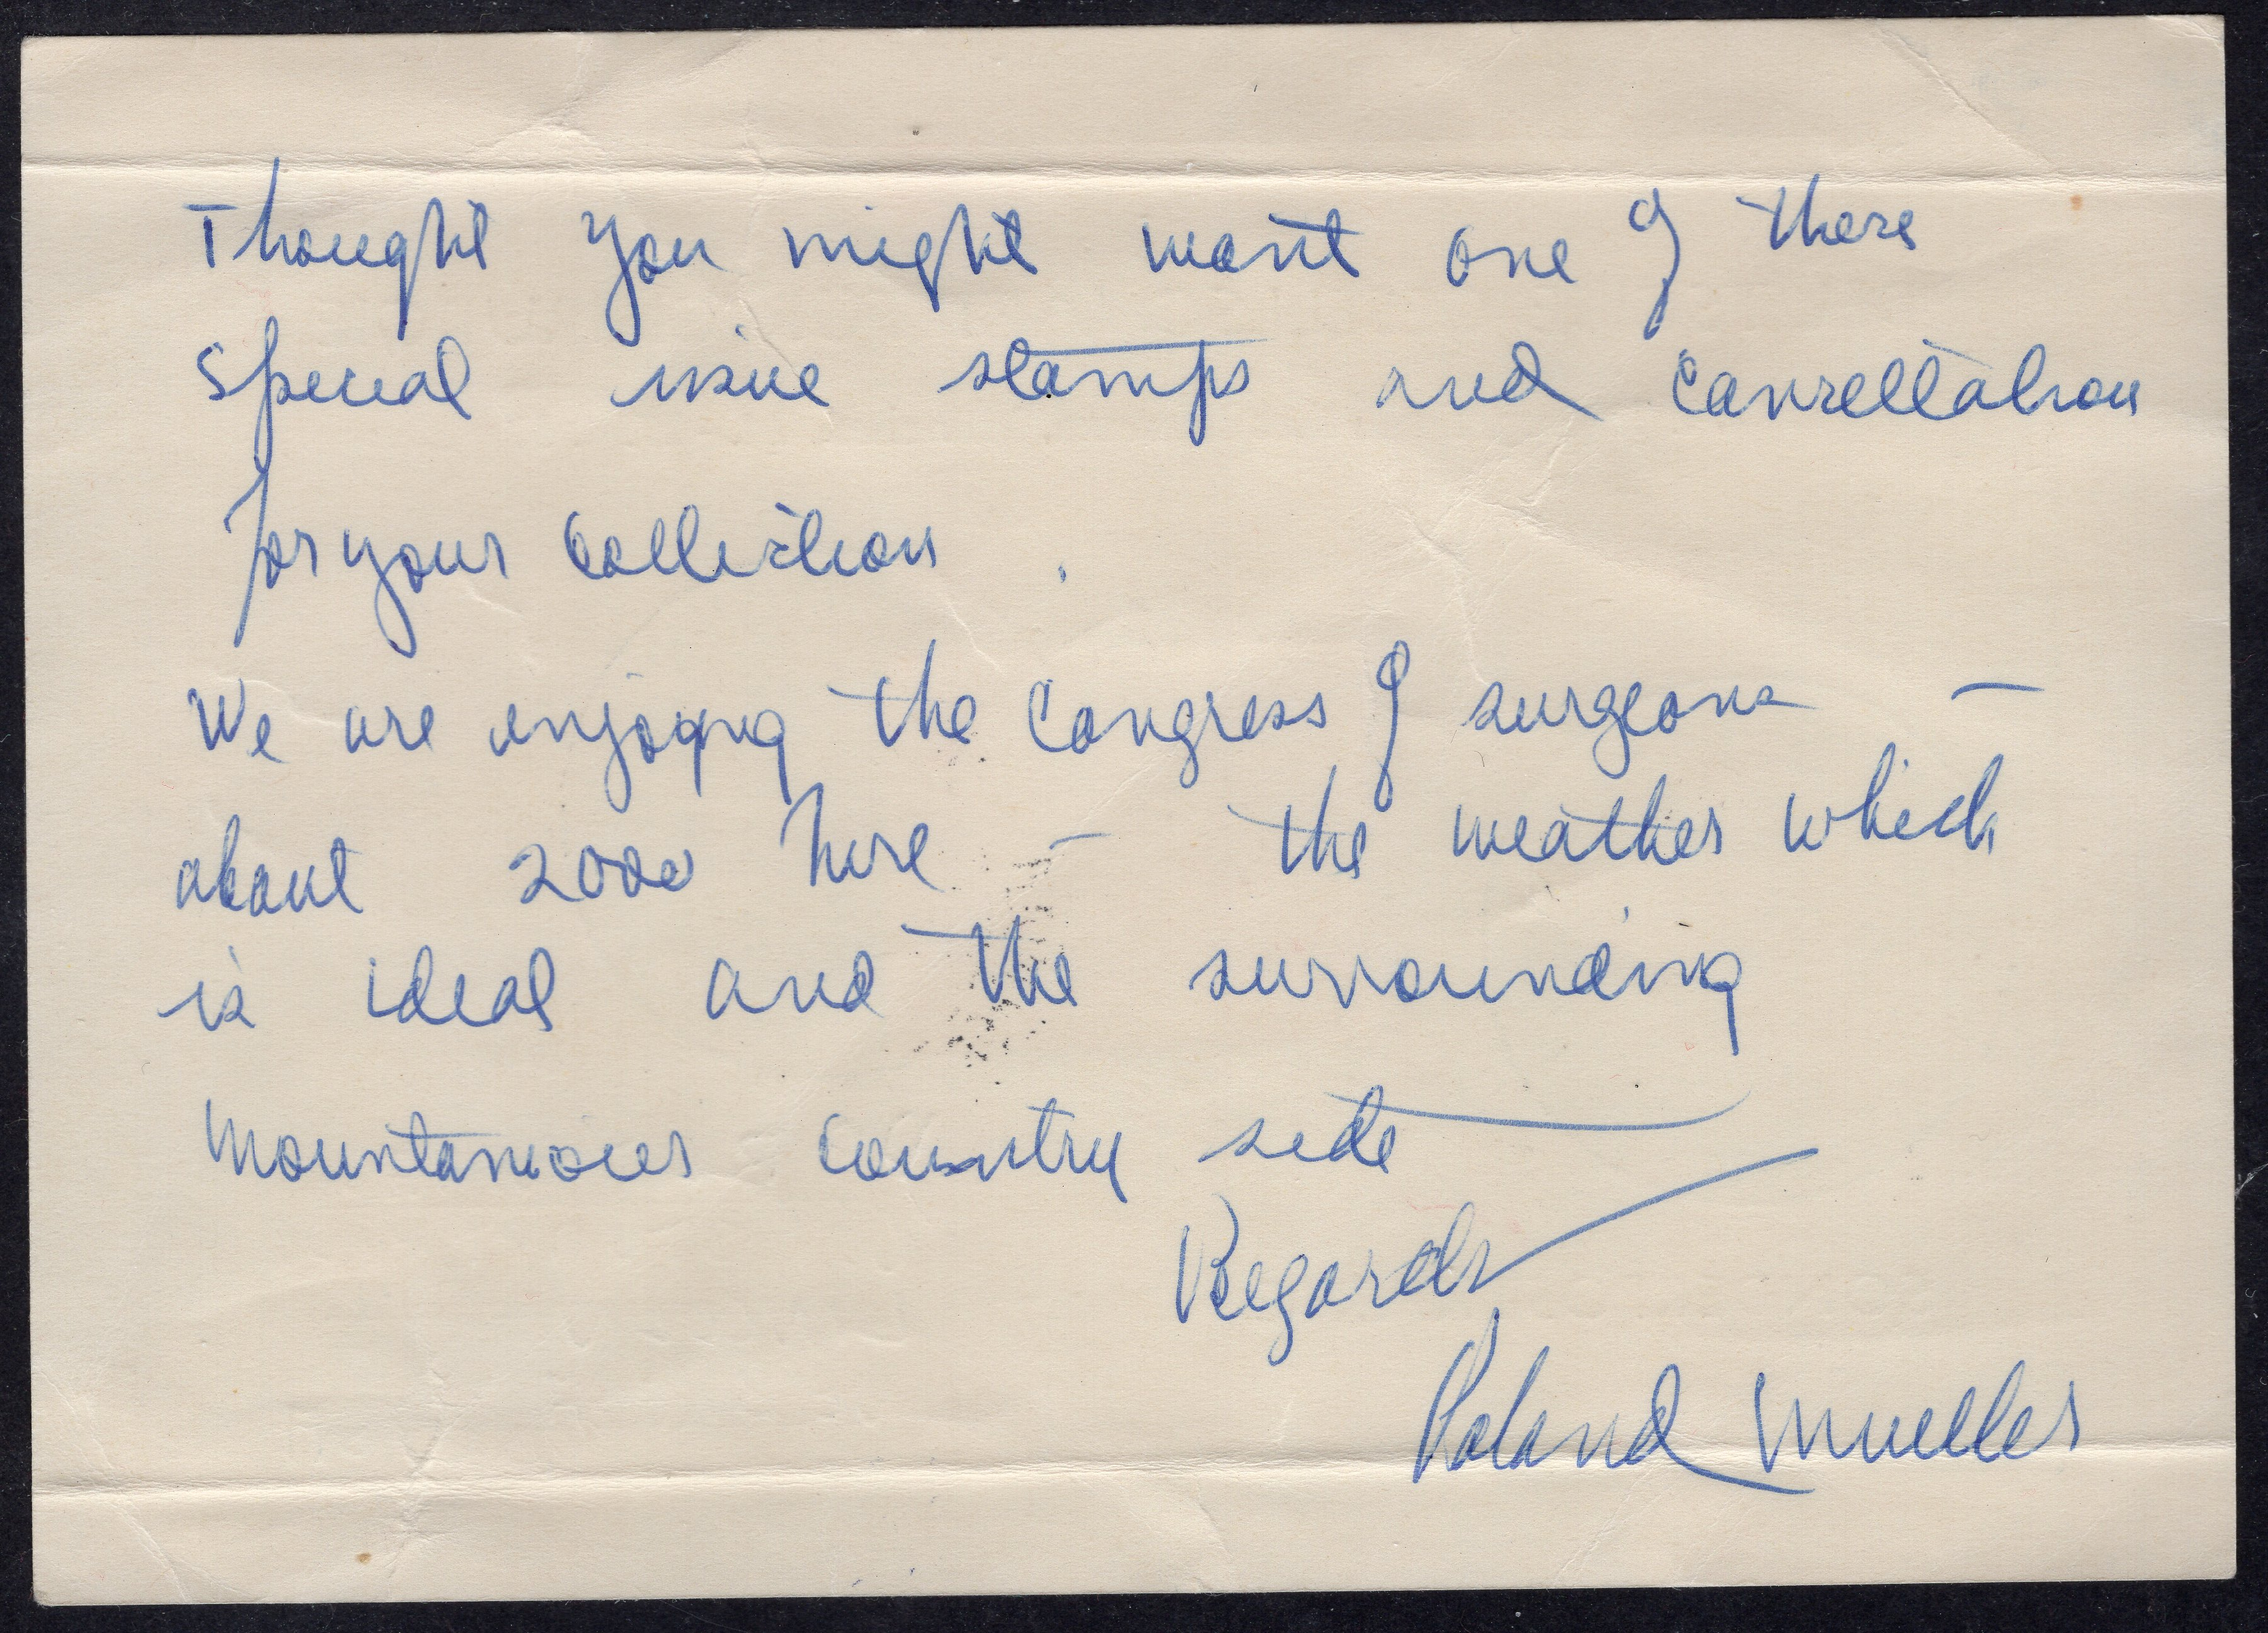 Thought you might want one of these
special issue stamps and cancellation
for your collection.
We are enjoying the Congress of surgeons —
about 2000 here — the weather which
is ideal and the surrounding
mountanious country side
Regards
Roland Mueller